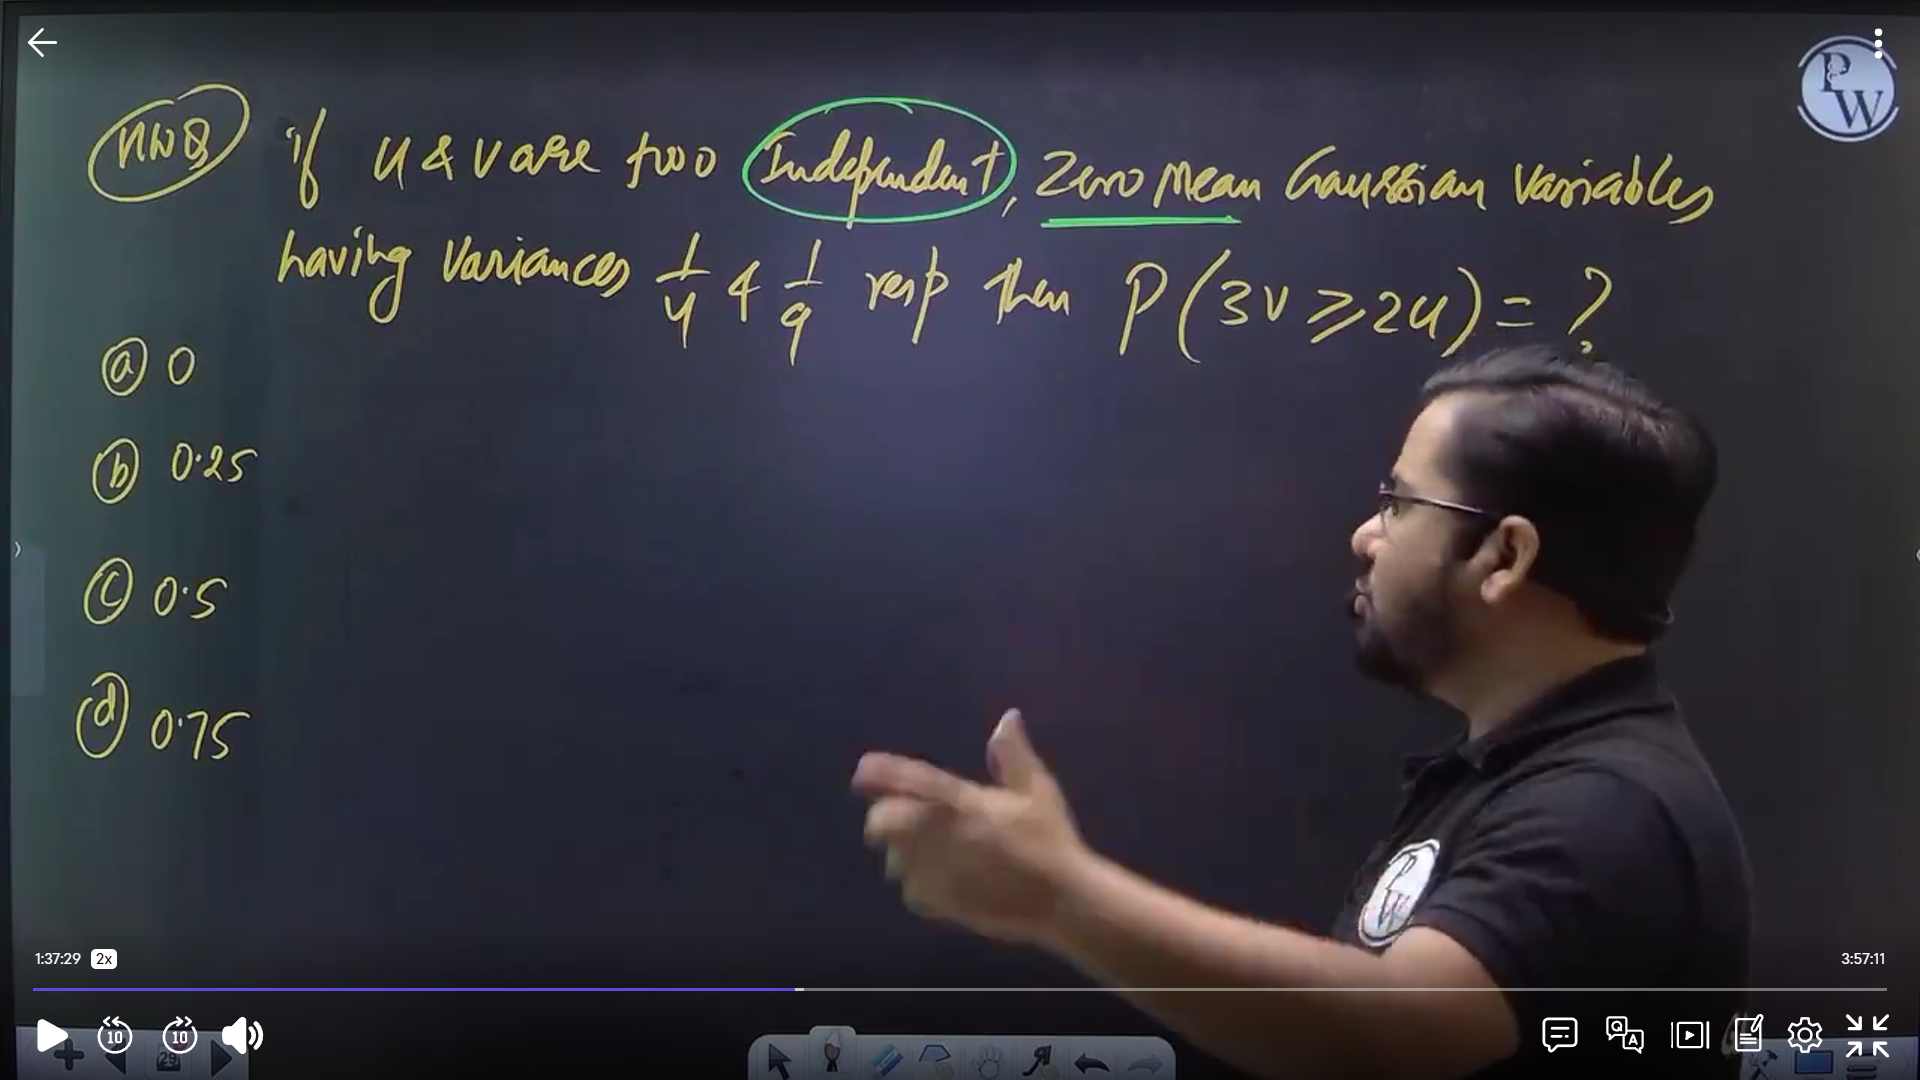 HWQ if U & V are two Independent, Zero Mean Gaussian Variables
having Variances 1/4 & 1/9 resp then P(3V ≥ 2U) = ?
ⓐ 0
ⓑ 0.25
ⓒ 0.5
ⓓ 0.75
PW
PW
1:37:29 2x
3:57:11
10 10
29